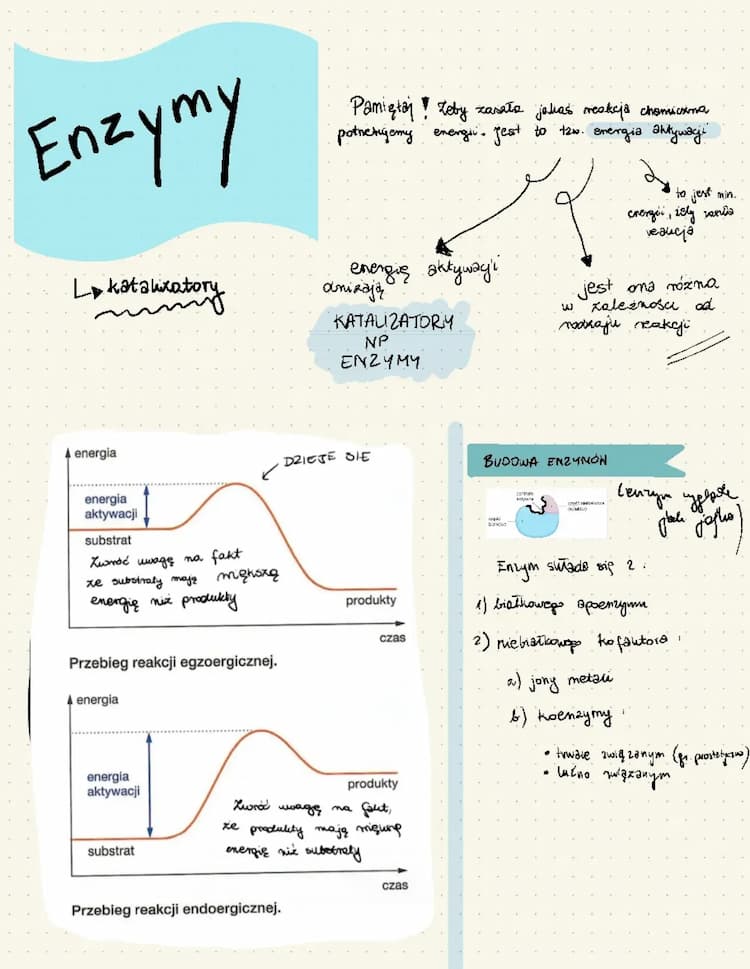 Enzymy
↳ katalizatory
Pamiętaj! Żeby zaszła jakaś reakcja chemiczna
potrzebujemy energii. Jest to tzw. energia aktywacji
to jest min.
energii, żeby zaszła
reakcja
energię aktywacji
obniżają
KATALIZATORY
NP
ENZYMY
jest ona różna
w zależności od
rodzaju reakcji
energia
DZIEJE SIĘ
energia
aktywacji
substrat
Zwróć uwagę na fakt
że substraty mają większą
energię niż produkty
produkty
czas
Przebieg reakcji egzoergicznej.
energia
energia
aktywacji
produkty
Zwróć uwagę na fakt,
że produkty mają większą
energię niż substraty
substrat
czas
Przebieg reakcji endoergicznej.
BUDOWA ENZYMÓW
(enzym wygląda
jak jajko)
Enzym składa się z:
1) białkowego apoenzymu
2) niebiałkowego kofaktora:
a) jony metali
b) koenzymy:
• trwale związanym (gr. prostetyczna)
• luźno związanym